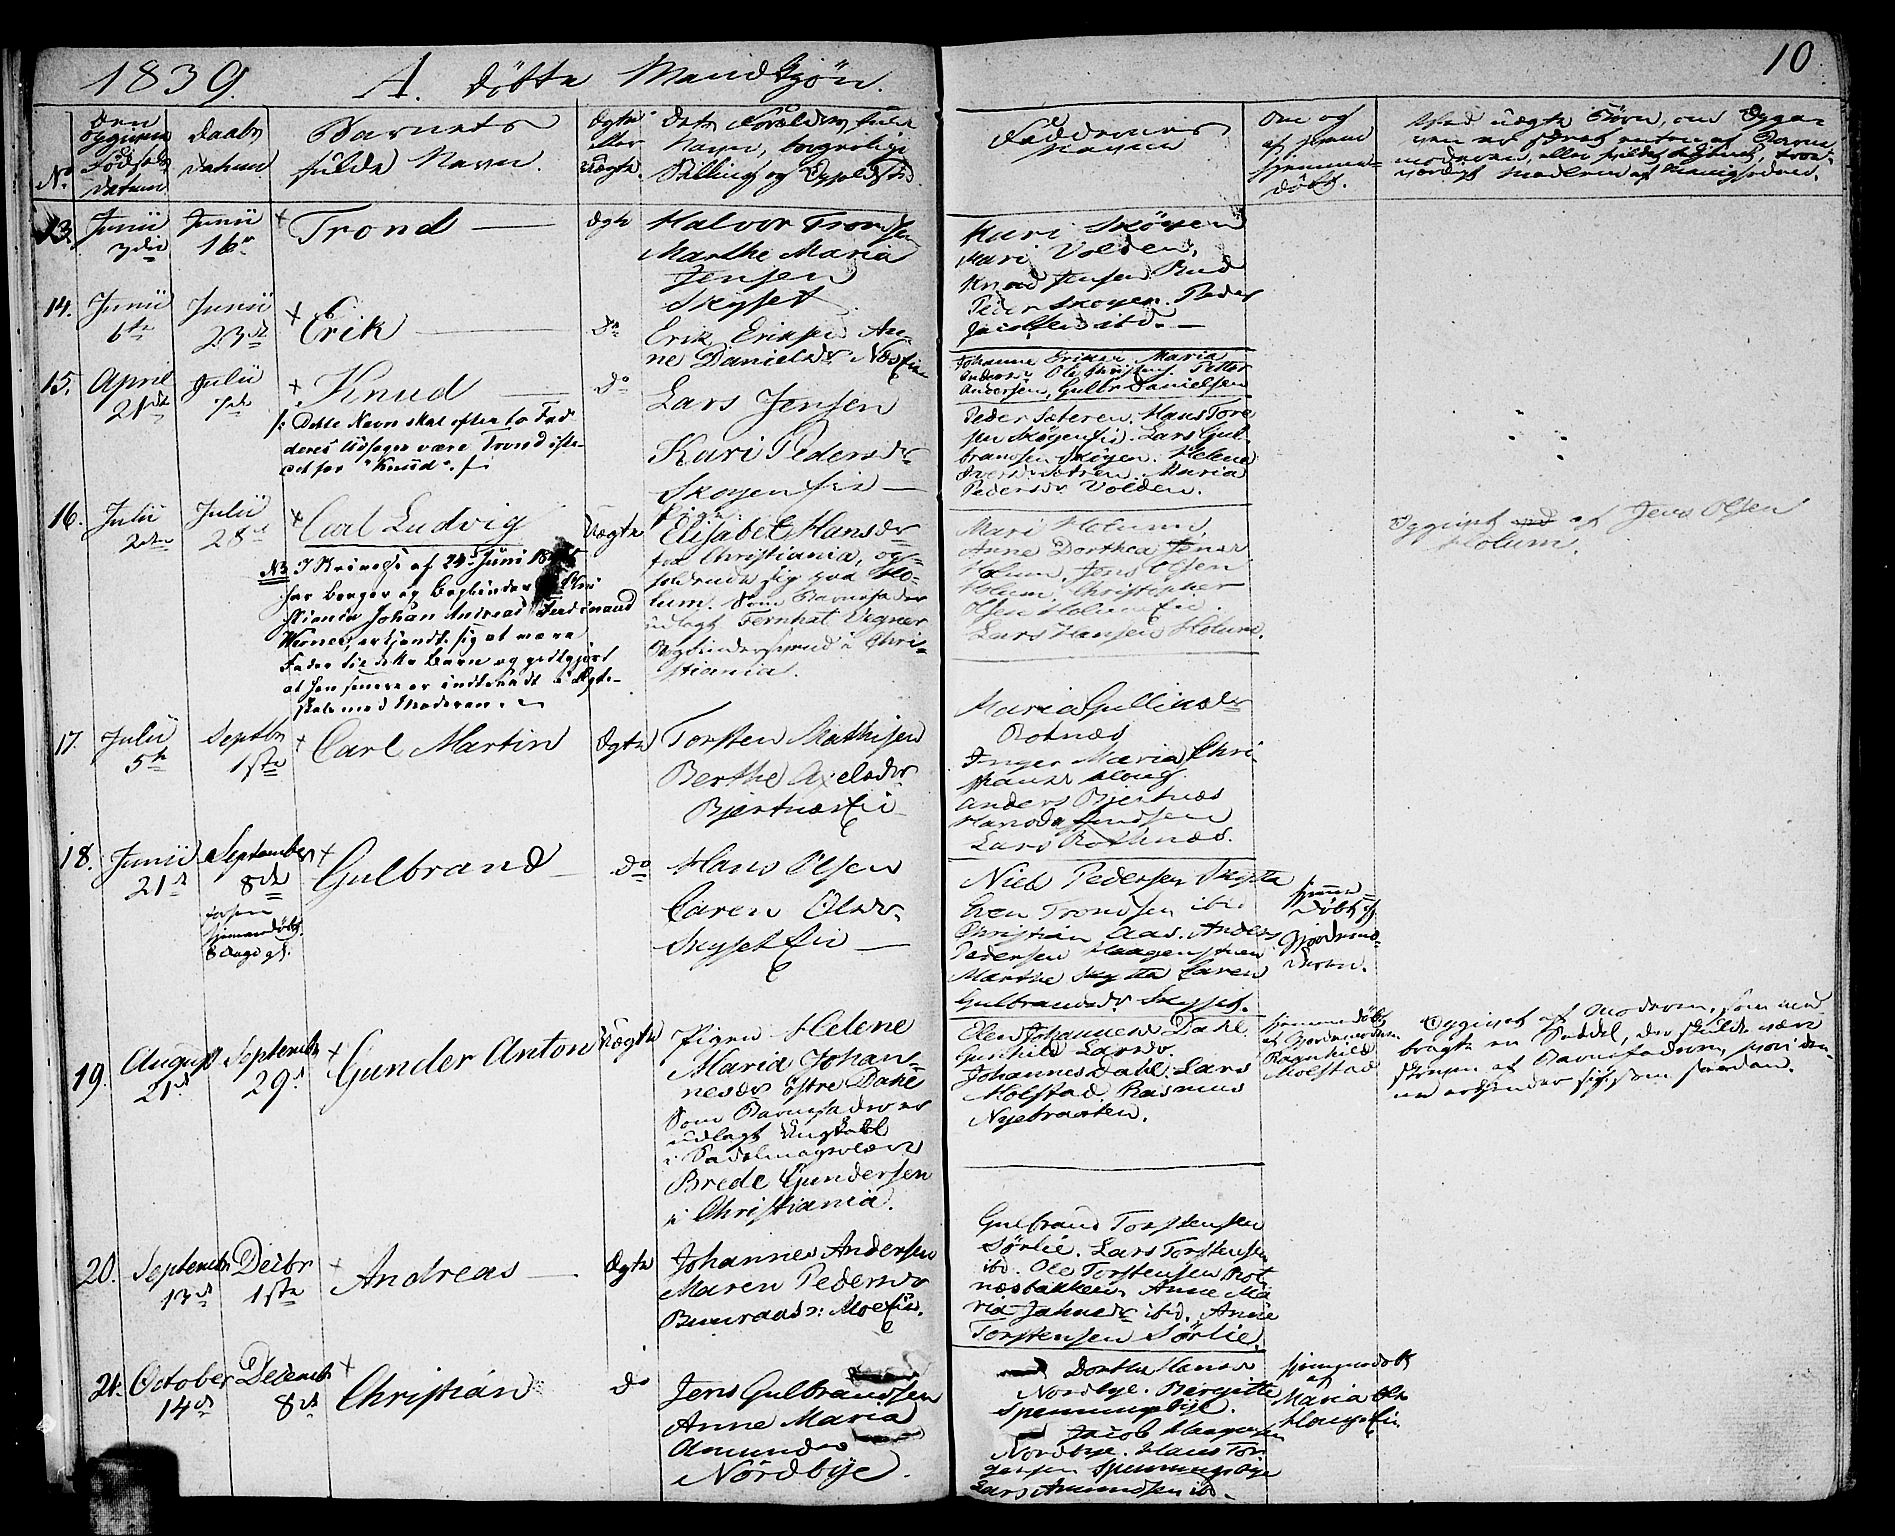 1839. A. Døbte Mandkjøn. 10
No
Den opgivne Fødsels Datum
Daabs Datum
Barnets fulde Navn.
Ægte eller Uægte.
Forældres fulde Navn, borgerlige Stilling og Opholdsted
Faddernes Navne
Om og af hvem hjemmedøbt.
13. Junii 7de
Junii 16de
Trond
Ægte
Halvor Trondsen
Marthe Maria
Jensen
Skyset
Mari Skøyen
Mari Volden,
Knud Jensen Rud
Peder Skøyen. Peder
Jacobsen ibd.
14. Junii 6te
Junii 23de
Erik
Do
Erik Eriksen An-
ne Danielsdr Næs Eie
Johanne Eriksen Maria
Andersen, Gulbr Danielsen
15. April 21de
Julii 7de
Knud
/: Dette Navn skal efter to Fad-
deres Udsagn være Trond iste-
det for "Knud". :/
Do
Lars Jensen
Kari Pedersdr
Skøyen Eie
Peder Sæteren. Hans Tore
sen Skøyen Eie. Lars Gul-
brandsen Skøyen. Helene
Maria
Pedersdr Volden.
16. Julii 2den
Julii 28de
Carl Ludvig
NB. I Skrivelse af 24de Juni 18
har Borger og Bogbinder i Chri
stiania Johan Andreas Ferdinand
Werner, erkjendt sig at være
Fader til dette Barn og godtgjort
at han senere er indtraadt i Ægte-
skab med Moderen.
Uægte
Pige
Elisabet Hansdr
fra Christiania, op-
holdende sig paa Ho-
lum. Som Barnefader
udlagt Fernhat Vigner
Bogbindersvend i Chri-
stiania.
Mari Holum,
Anne Dorthea Jensdr
Holum, Jens Olsen
Holum, Christopher
Olsen Holum Eie.
Lars Hansen Holum.
Opgivet af Jens Olsen
Holum.
17. Julii 5te
Septbr 1ste
Carl Martin
Ægte
Torsten Mathisen
Berthe Axelsdr
Bjertnæs Eie
Maria Gulliksdr
Rotnæs
Inger Maria Chri-
Anders Bjertnæs
Lars Rotnæs.
18. Junii 21de
September 8de
hjemmedøbt
8 Dage gl.
Gulbrand
Do
Hans Olsen
Caren Olsdr
Skyset Eie
Niels Pedersen Skytta
Even Trondsen ibd
Christian Aas. Anders
Pedersen Haagenstuen
Marthe Skytta Caren
Gulbrandsdr Skyset.
hjemme
døbt af
Gjordemo-
deren.
19. August 21de
Septembr 29de
Gunder Anton
Uægte
Pigen Helene
Maria Johan-
nesdr Østre Dahl
Som Barnefader er
udlagt Ungkarl
i Sadelmagerlære
Brede Gundersen
i Christiania.
Elen Johannesdr Dahl
Gunhild Larsdr.
Johannes Dahl. Lars
Molstad. Rasmus
Nyebraaten.
hjemmedøbt
af Gjordemoderen
Ragnhild
Molstad
Opgivet af Moderen, som med-
bragte en Seddel, der skulde være
skreven af Barnefaderen, hvori den-
ne erkjender sig som saadan.
20. Septembr 13de
Decbr 1ste
Andreas
Ægte
Johannes Andersen
Maren Pedersdr
Bunraas v: Moe Eie.
Gulbrand Torstensen
Sørlie. Lars Torstensen
ibd. Ole Torstensen Rot
næsbakken, Anne Ma
ria Jahnsdr ibd. Anne
Torstensen Sørlie.
21. October 14de
Decembr 8de
Christian
Do
Jens Gulbrandsen
Anne Maria
Amundsdr
Nordbye.
Dorthe Hansdr
Nordbye. Birgitte
Spenningsbye.
Jacob Haagensen
Nordbye. Hans Tor
gersen Spenningsbye
Lars Amundsen ibd.
hjemmedøbt
af
Maria Ols
Haugs Eie.